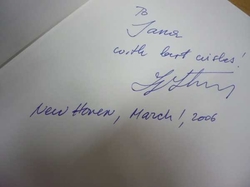 To
Jana
with best wishes!
New Haven, March 1, 2006